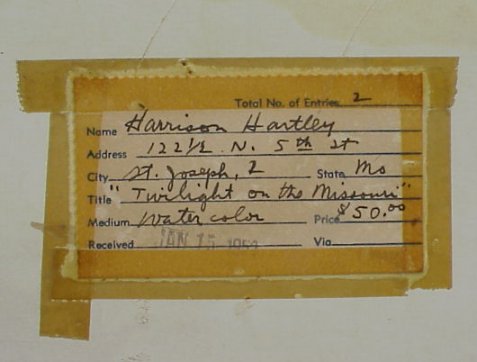 Total No. of Entries 2
Name Harrison Hartley
Address 122½ N. 5th st
City St. Joseph, 2 State Mo
Title "Twilight on the Missouri"
Medium Water color Price $50.00
Received JAN 15 Via